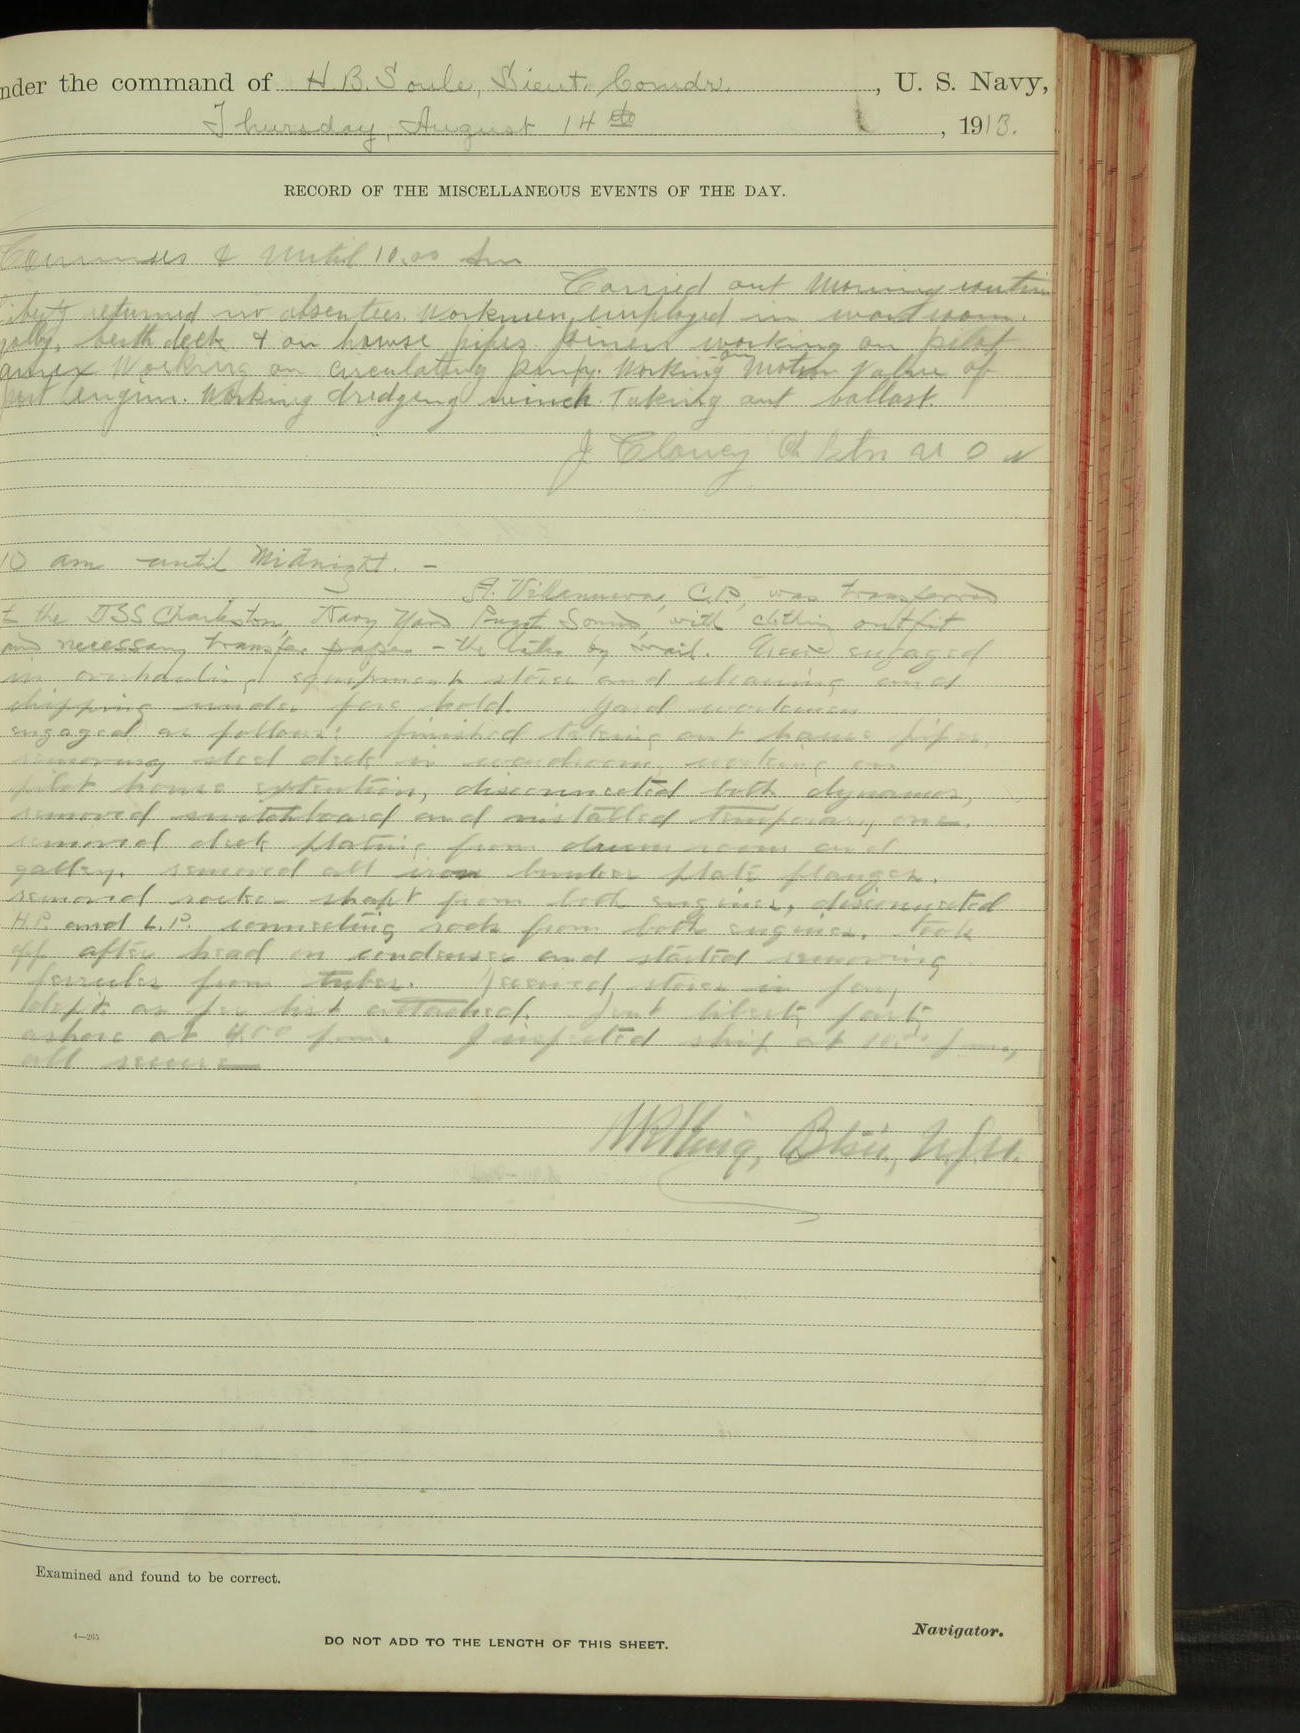 nder the command of H. B. Soule, Lieut. Comdr. , U. S. Navy,
Thursday, August 14th , 1913.
RECORD OF THE MISCELLANEOUS EVENTS OF THE DAY.
Commences & until 10.00 Am
Carried out Morning routin
liberty returned no absentees. Workmen employed in wardroom.
gally, berth deck & on hawse pipes. Joiners working on pilot
annex Working on circulating pump. Working on Motion valve of
Port Engine. Working dredging winch. Taking out ballast.
J Clancy Ch Btn U S N
10 am until Midnight. –
A. Villanueva, C.P., was transferred
to the USS Charleston, Navy Yard Puget Sound, with clothing outfit
and necessary transfer papers – the latter by mail. Crew engaged
in overhauling equipment stores and cleaning and
chipping under fore hold. Yard workmen
engaged as follows: finished taking out hawse pipes,
removing steel deck in wardroom, working on
pilot house extention, disconnected both dynamos,
removed switchboard and installed temporary one.
removed deck plating from drum room and
galley. removed all iron bunker plate flanges.
removed rocker shaft from both engines, disconnected
H.P. and L.P. connecting rods from both engines. took
off after head on condenser and started removing
ferrules from tubes. Received stores in pay
dep't as per list attached. Sent liberty party
ashore at 4.00 p.m. Inspected ship at p.m.,
all secure
King, Btsn., U.S.N.
Examined and found to be correct.
4—265
DO NOT ADD TO THE LENGTH OF THIS SHEET.
Navigator.